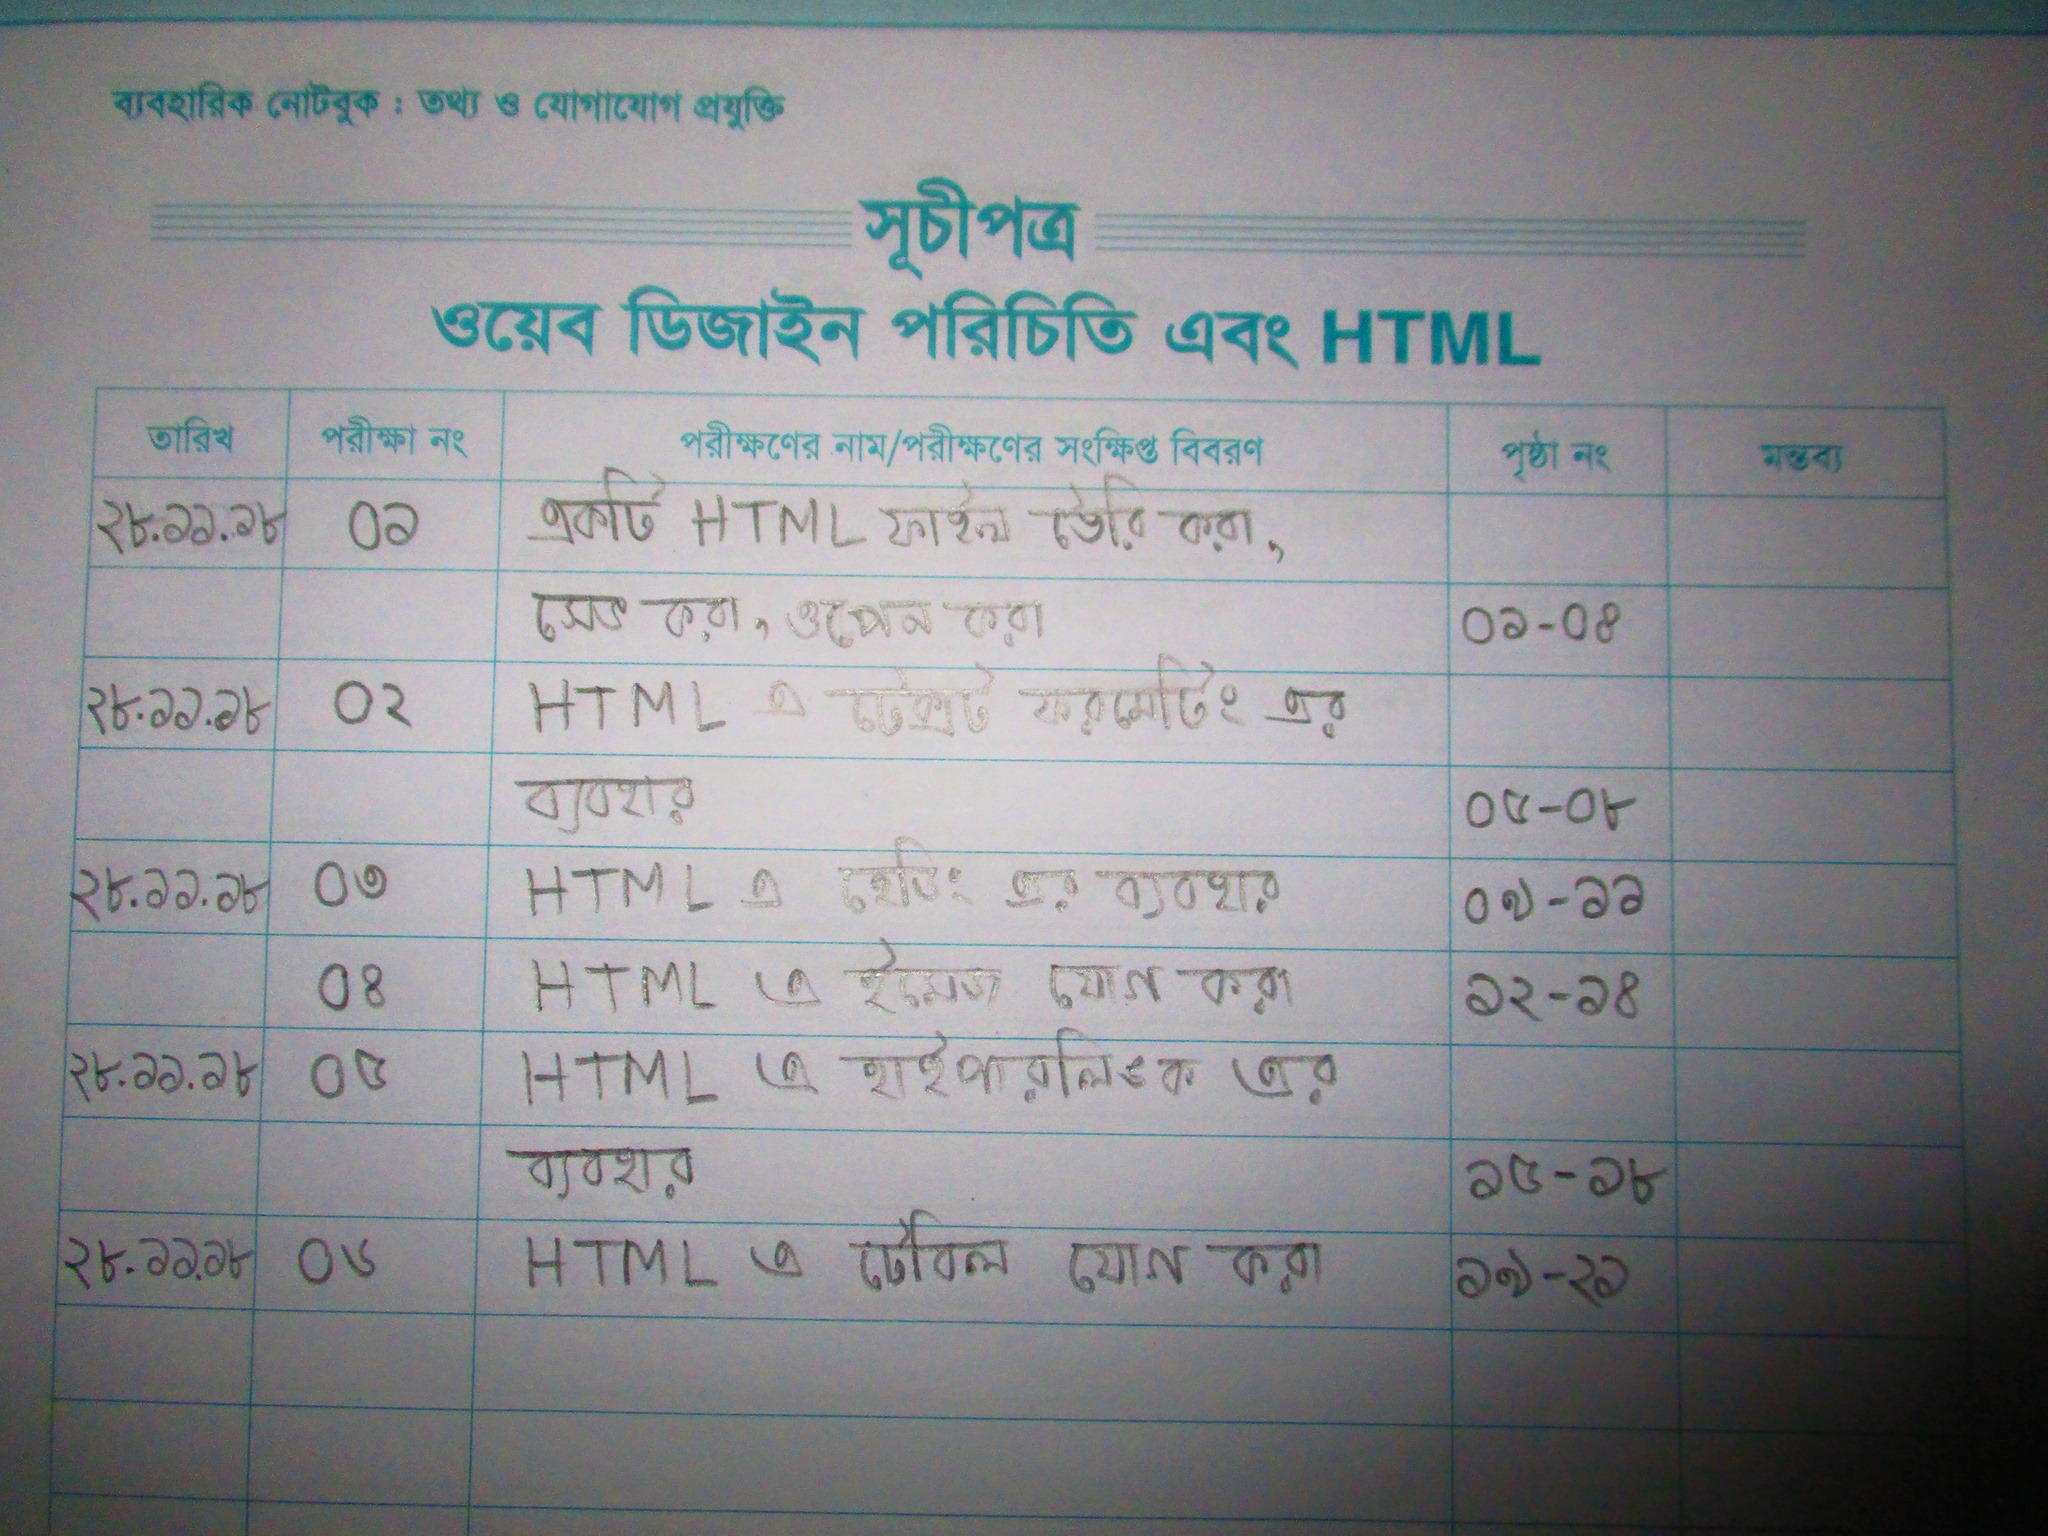 ব্যবহারিক নোটবুক : তথ্য ও যোগাযোগ প্রযুক্তি
সূচীপত্র
ওয়েব ডিজাইন পরিচিতি এবং HTML
তারিখ পরীক্ষা নং পরীক্ষণের নাম/পরীক্ষণের সংক্ষিপ্ত বিবরণ পৃষ্ঠা নং মন্তব্য
২৮.১১.১৮ ০১ একটি HTML ফাইল তৈরি করা,
সেভ করা, ওপেন করা ০১-০৪
২৮.১১.১৮ ০২ HTML এ টেক্সট ফরমেটিং এর
ব্যবহার ০৫-০৮
২৮.১১.১৮ ০৩ HTML এ হেডিং এর ব্যবহার ০৯-১১
০৪ HTML এ ইমেজ যোগ করা ১২-১৪
২৮.১১.১৮ ০৫ HTML এ হাইপারলিঙক এর
ব্যবহার ১৫-১৮
২৮.১১.১৮ ০৬ HTML এ টেবিল যোগ করা ১৯-২১